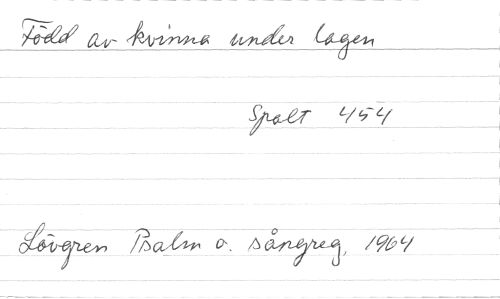 Född av kvinna under lagen
Spalt 454
Lövgren Psalm o. sångreg. 1964